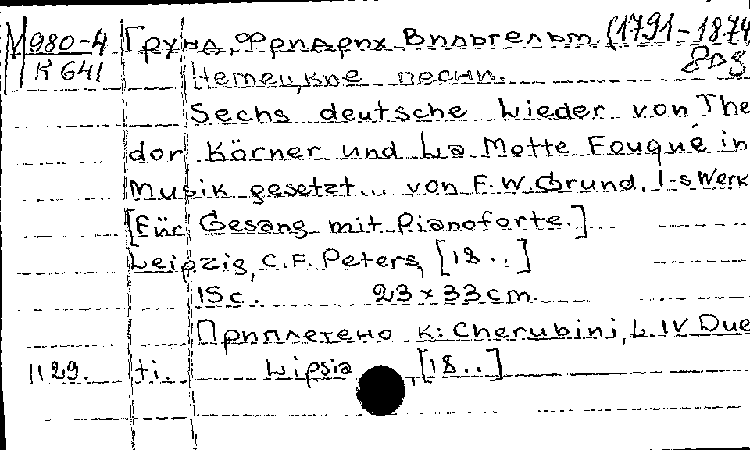 М980-4 Грунд, Фридрих Вильгельм (1791-1874
К 641
Немецкие песни.
Sechs deutsche Lieder von The
dor Körner und La Motte Fouqué in
Musik gesetzt... von F.W.Grund. 1-s Werk
[Für Gesang mit Pianoforte.]
Leipzig, C.F. Peters, [18..]
15 c. 23 x 33 cm.
Приплетено к: Cherubini, L. IV Due
1129. ti. Lipsia, [18..]